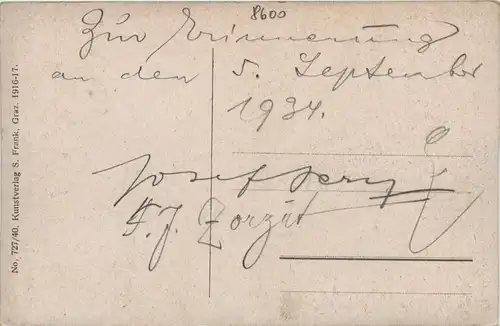 8600
Zur Erinnerung
an den 5. September
1934.
Josef
F. J. Zorzut
No. 727/40. Kunstverlag S. Frank, Graz. 1916-17.